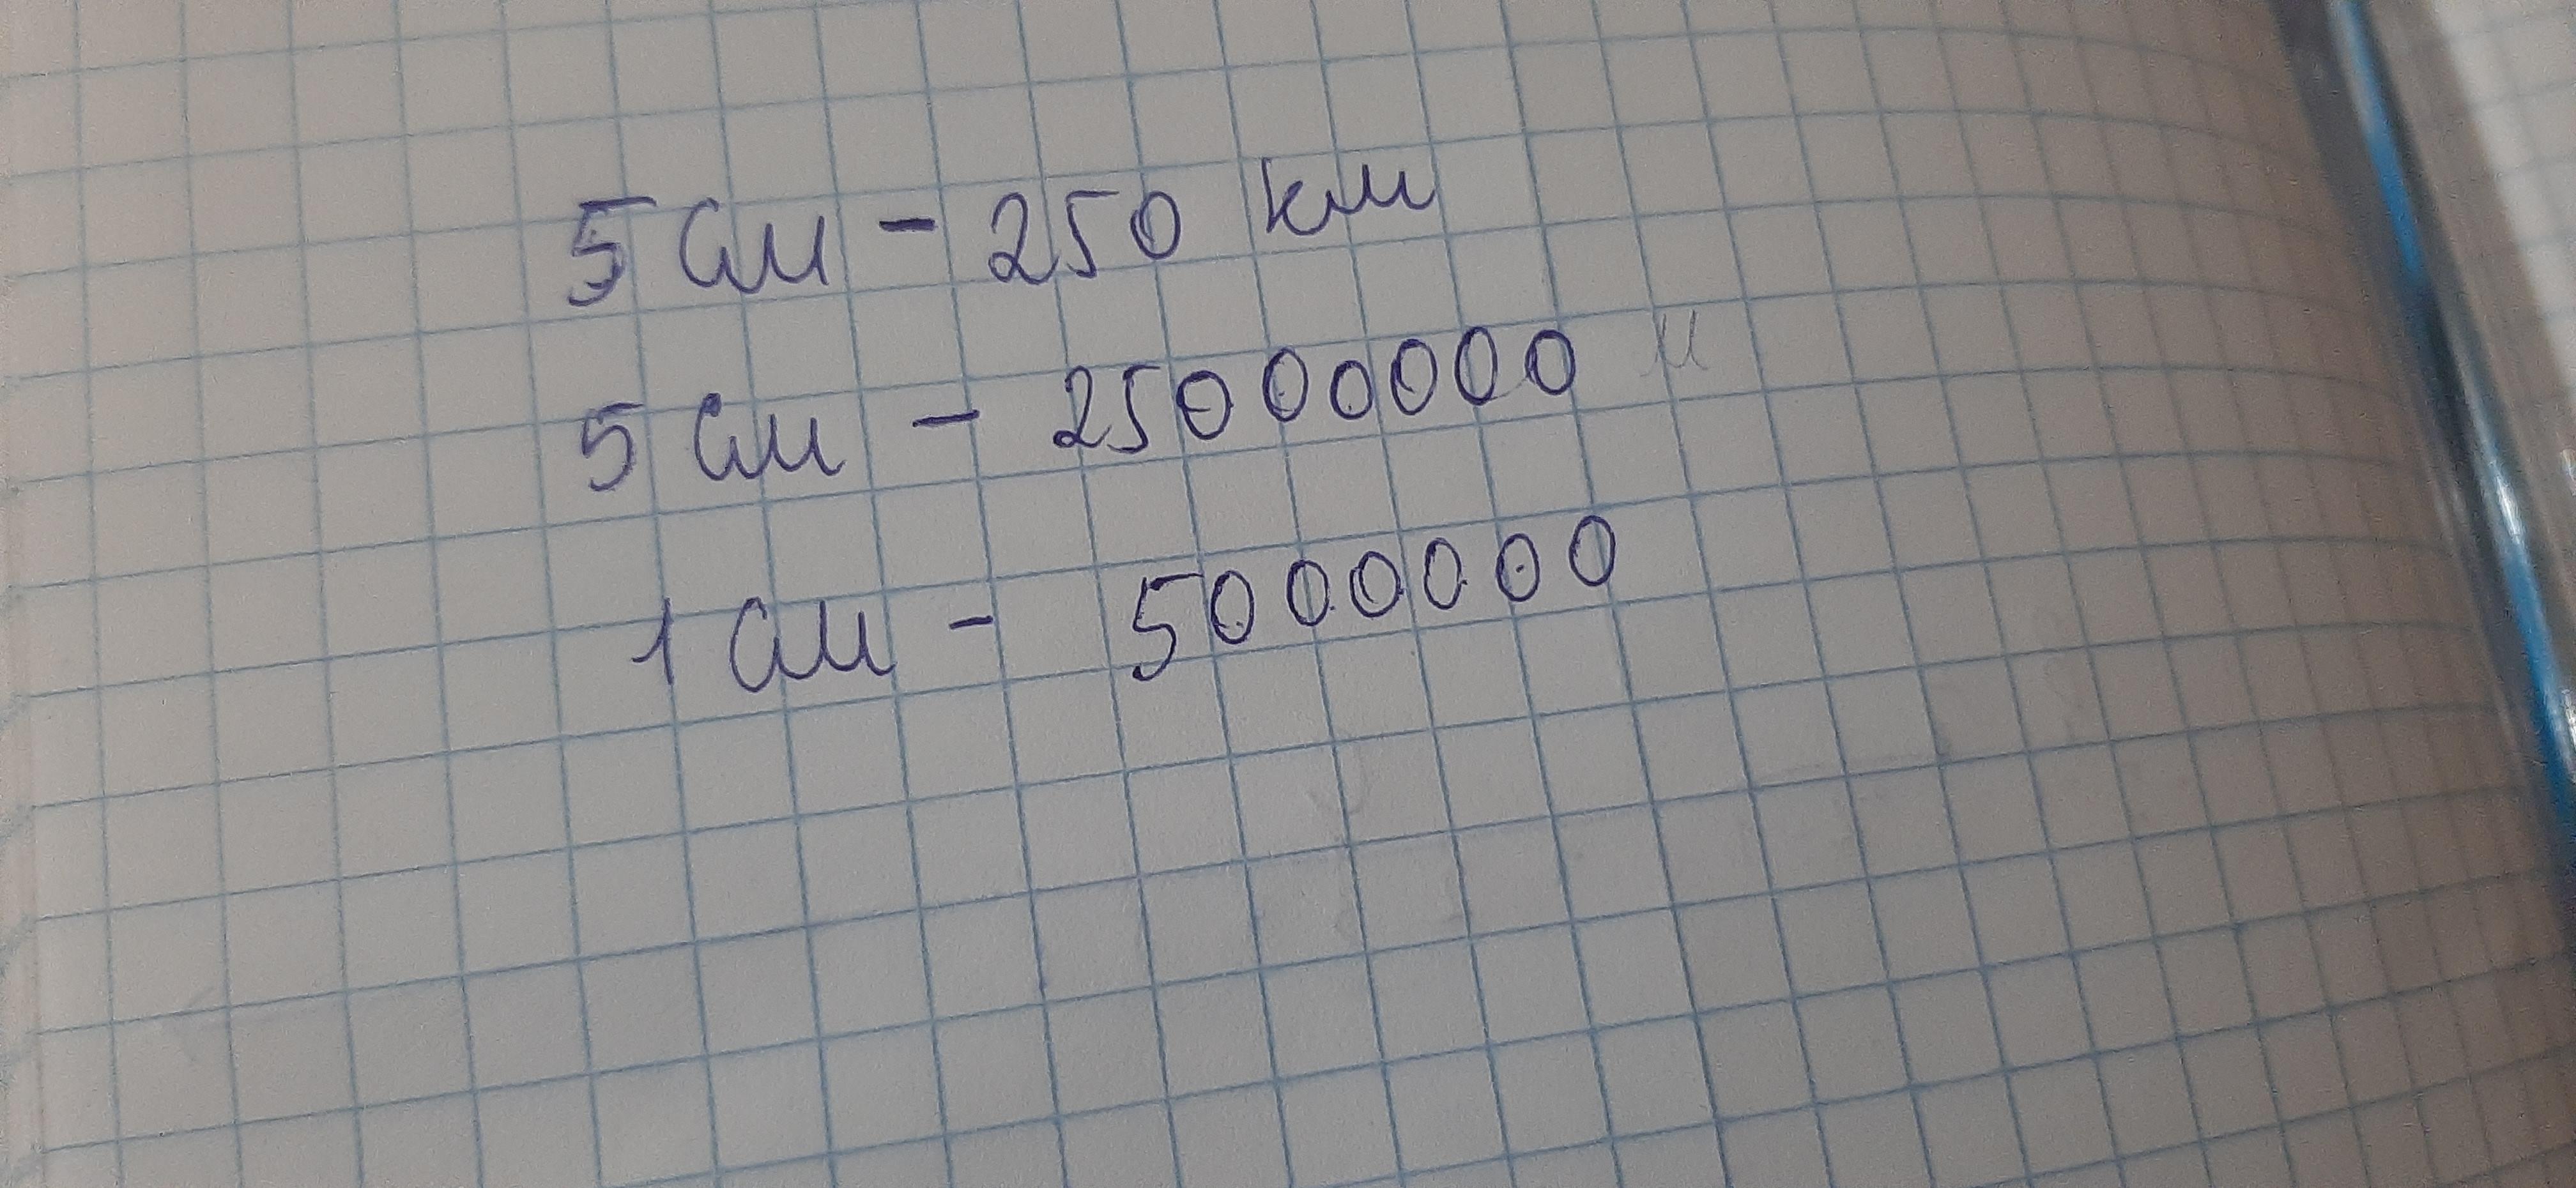 5 см - 250 км
5 см - 25000000 м
1 см - 5000000